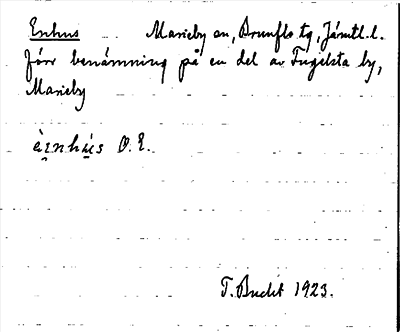 Enhus Marieby sn, Brunflo tg, Jämtl. l.
Förr benämning på en del av Fugelsta by,
Marieby
èi̯nhú̱s O. E.
T. Bucht 1923.